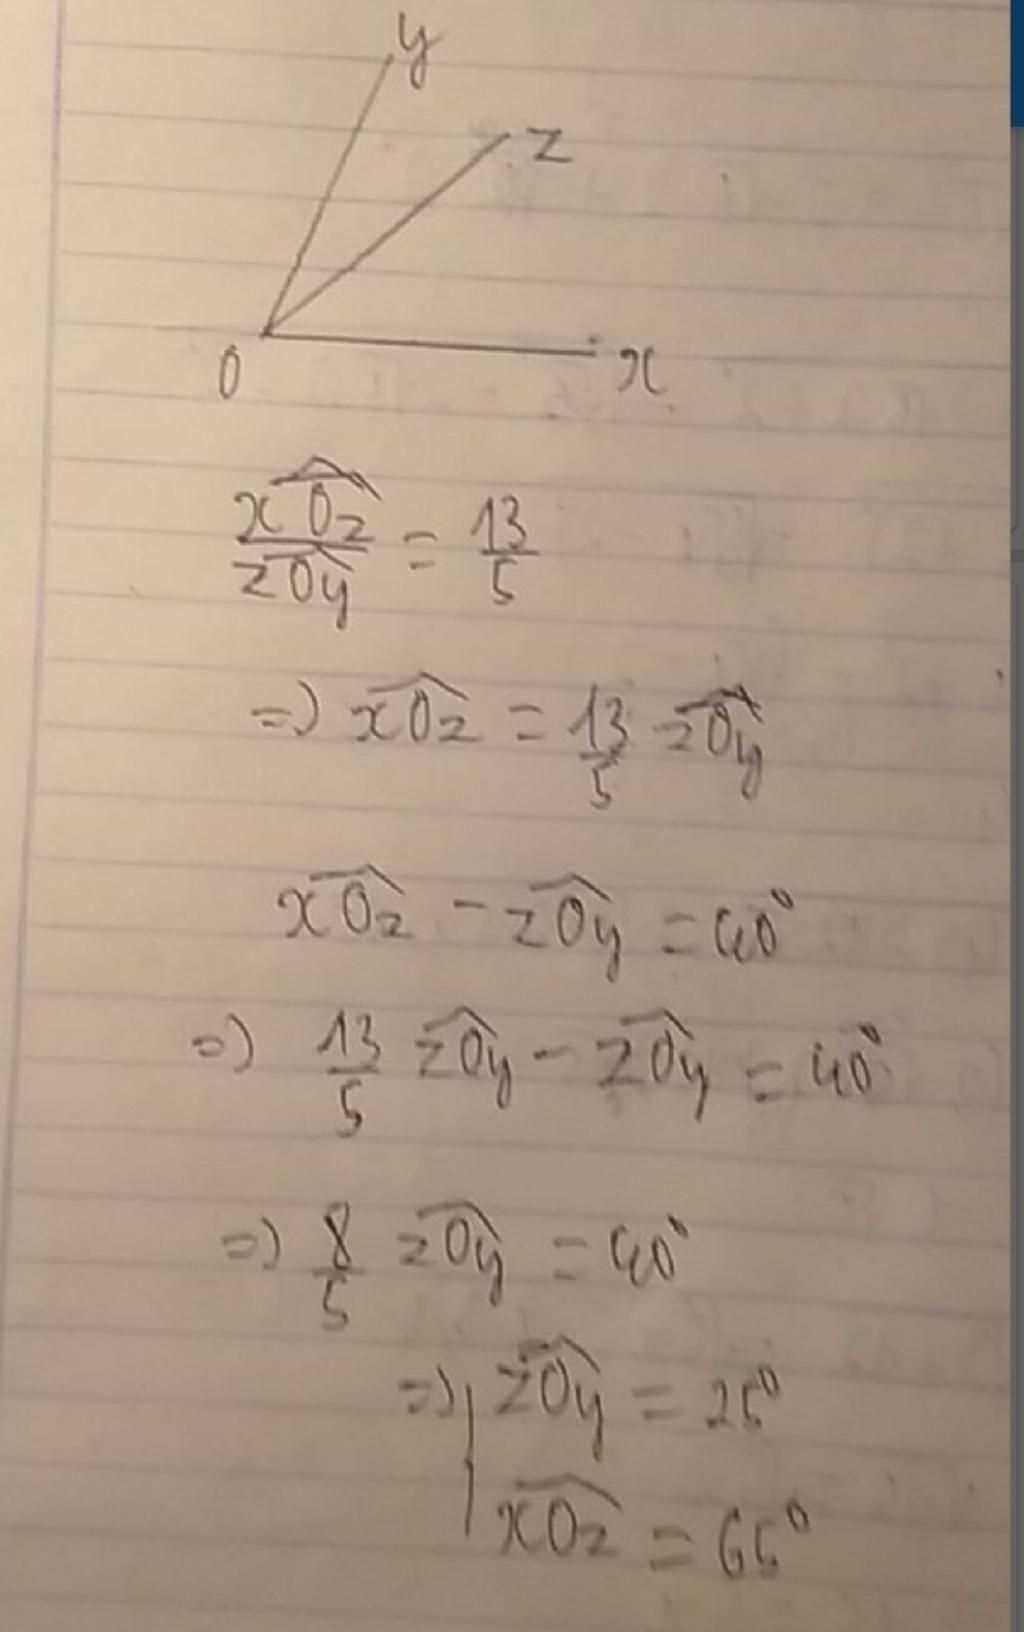 y
z
O
x
xOz/zOy = 13/5
=) xOz = 13/5 zOy
xOz - zOy = 40°
=) 13/5 zOy - zOy = 40°
=) 8/5 zOy = 40°
=) zOy = 25°
xOz = 65°